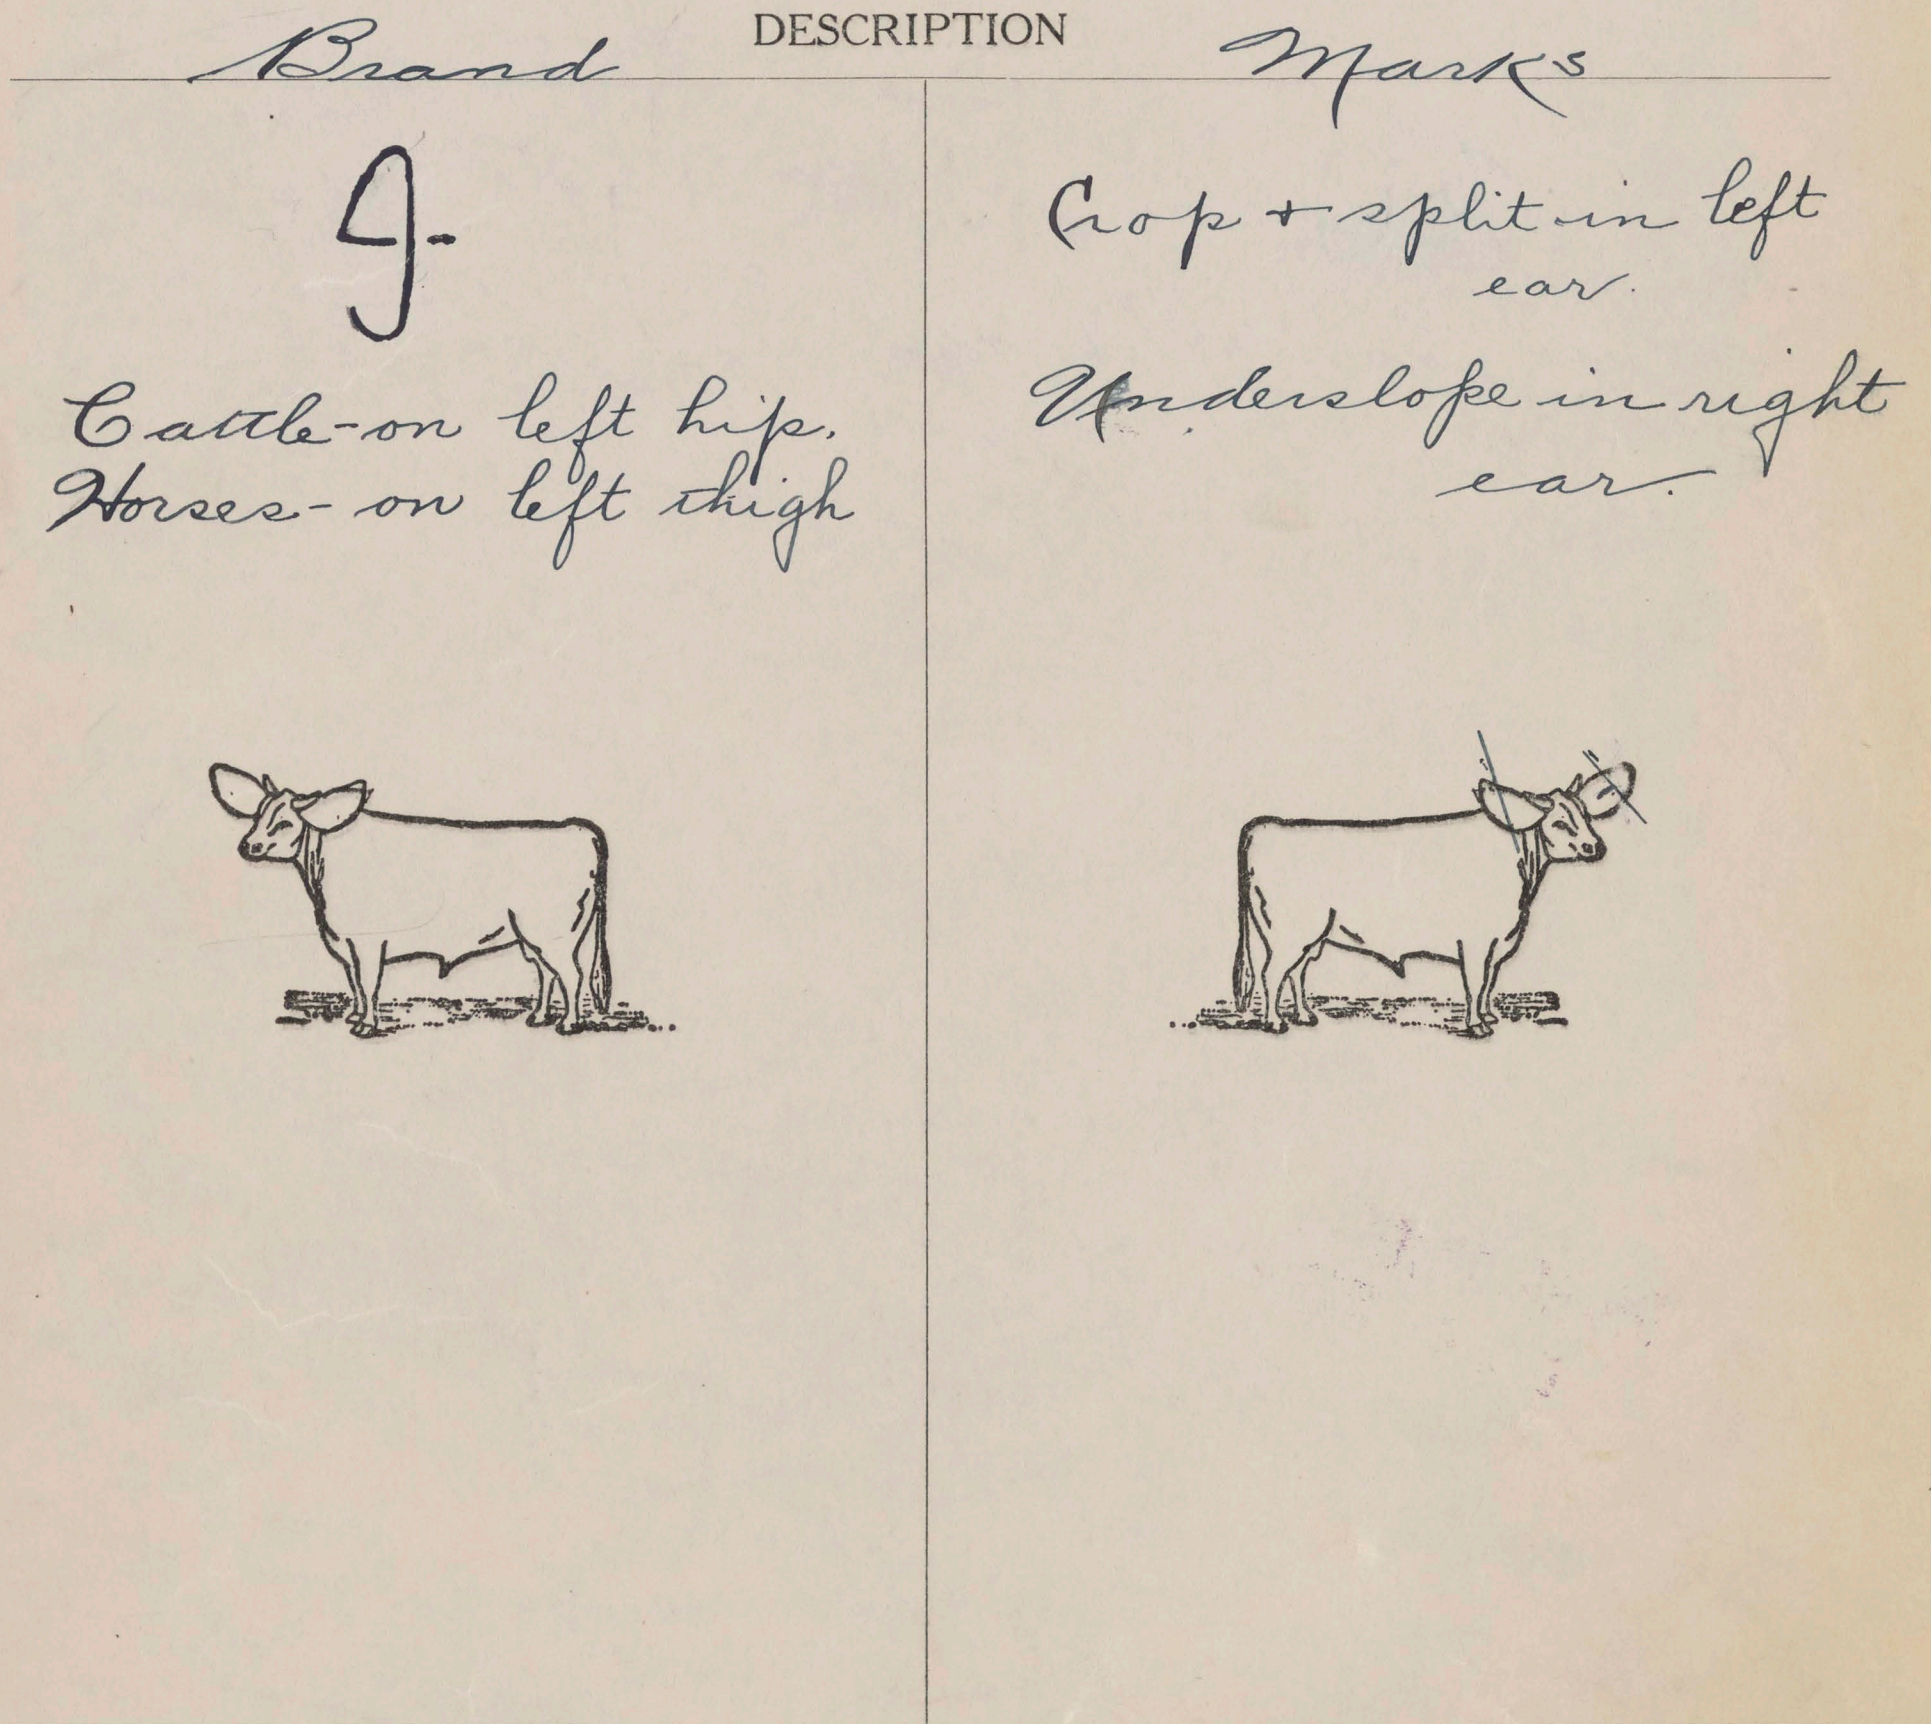 DESCRIPTION
Brand
Cattle-on left hip.
Horses-on left thigh
Marks
Crop + split in left
ear.
Underslope in right
ear.